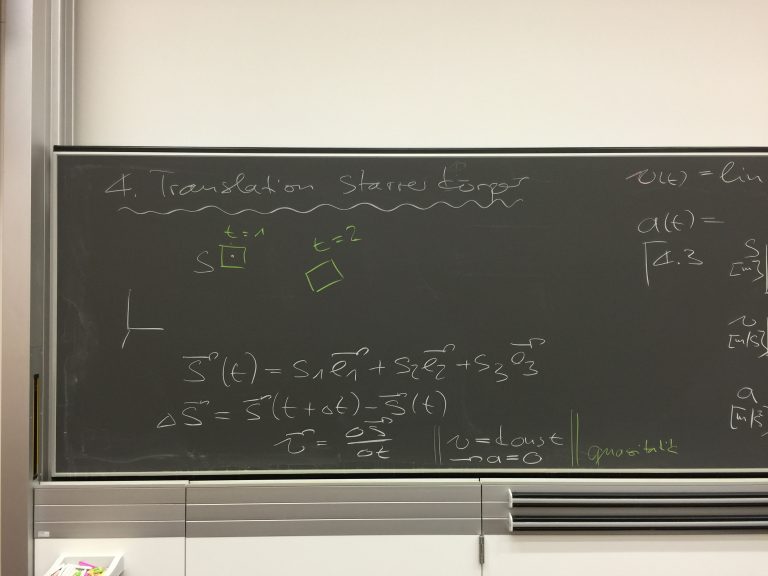 4. Translation Starrer Körper
t=1
t=2
S
S⃗(t) = S₁e⃗₁ + S₂e⃗₂ + S₃e⃗₃
ΔS⃗ = S⃗(t+Δt) - S⃗(t)
v⃗ = ΔS⃗/Δt
v = const
→ a = 0
quasistatic
v(t) = lim
a(t) =
4.3
S
[m]
v
[m/s]
a
[m/s²]